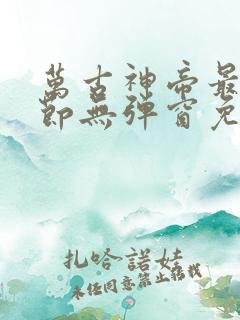 萬古神帝最
節無彈窗免
扎哈諾娃
未經同意禁止轉載